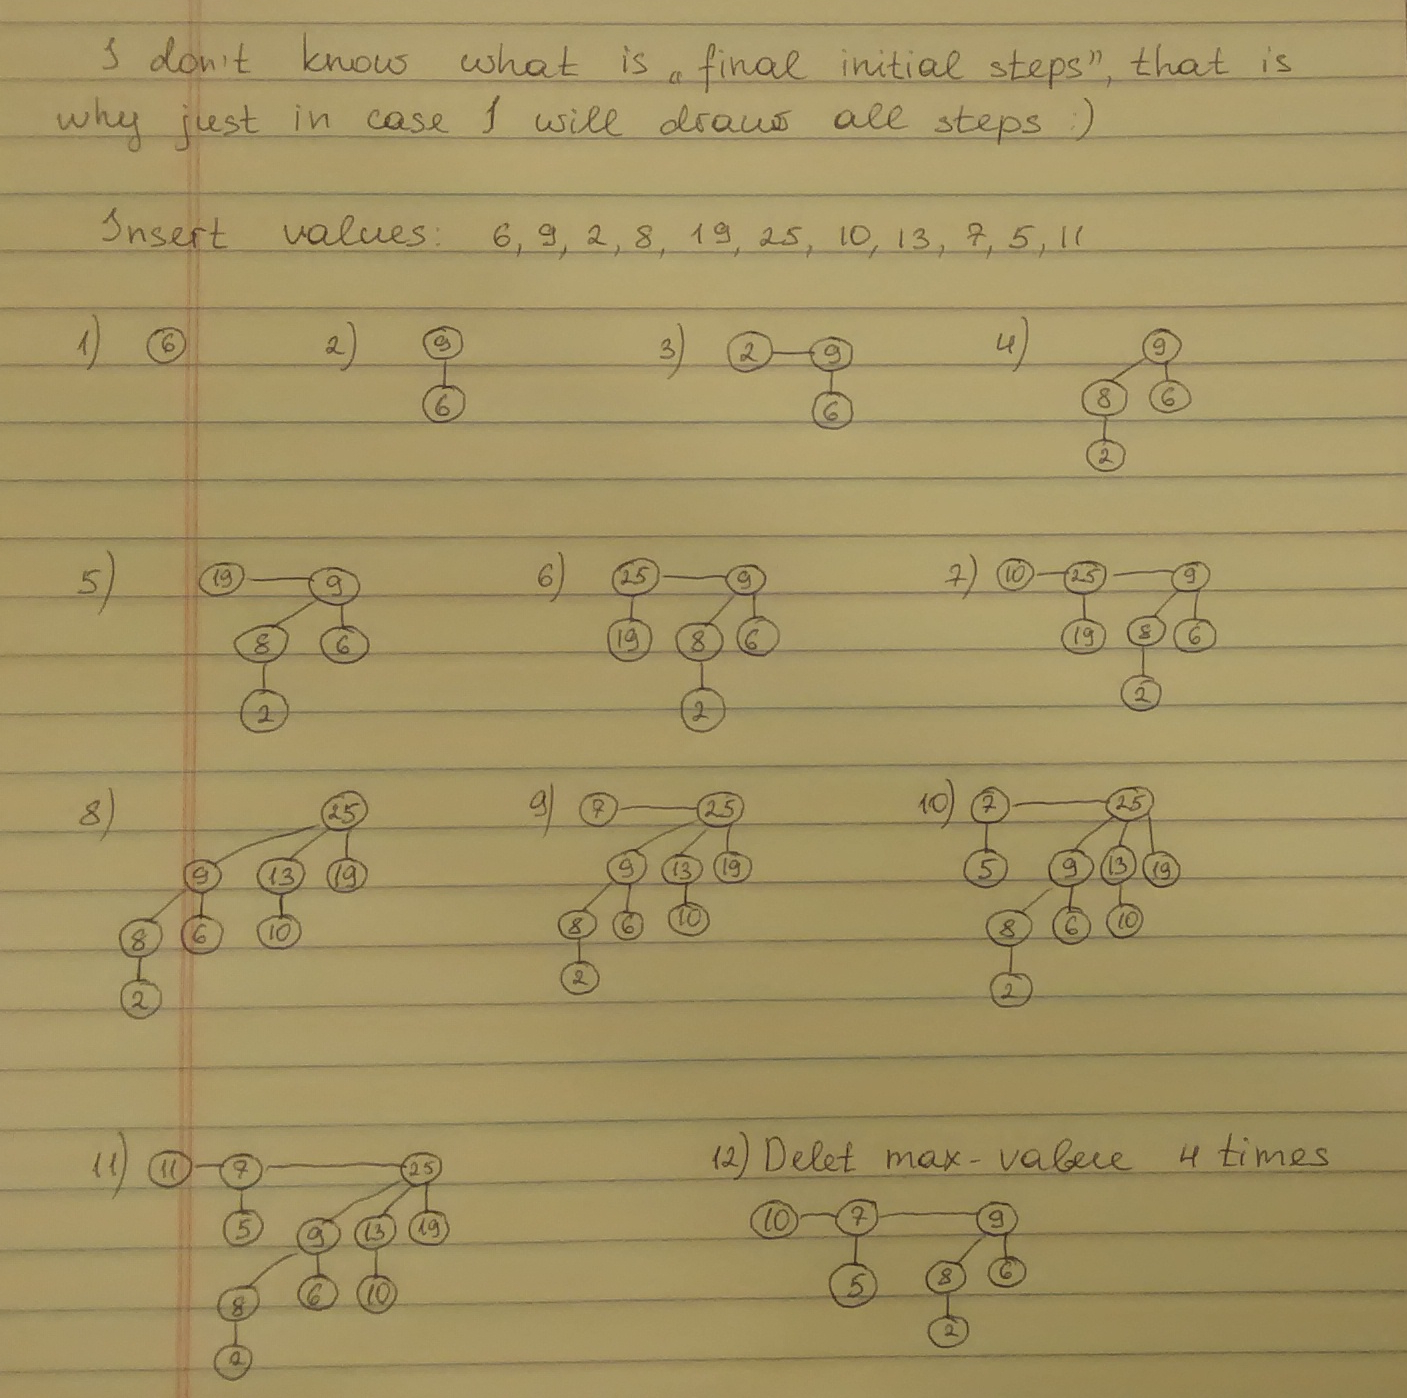 I don't know what is „final initial steps", that is
why just in case I will draw all steps :)
Insert values: 6, 9, 2, 8, 19, 25, 10, 13, 7, 5, 11
1) 6 2) 9 3) 2 9 4) 9
6 6 8 6
2
5) 19 9 6) 25 9 7) 10 25 9
8 6 19 8 6 19 8 6
2 2 2
8) 25 9) 7 25 10) 7 25
9 13 19 9 13 19 5 9 13 19
8 6 10 8 6 10 8 6 10
2 2 2
11) 11 7 25
5 9 13 19
8 6 10
2
12) Delet max-value 4 times
10 7 9
5 8 6
2